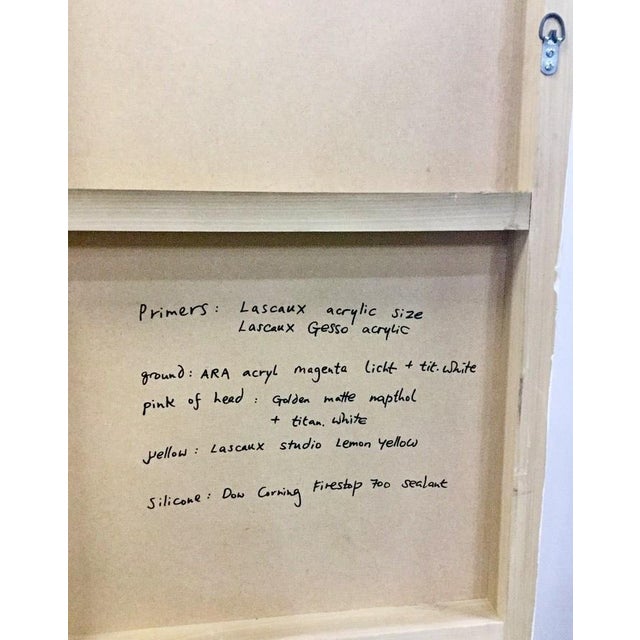 Primers: Lascaux acrylic size
Lascaux Gesso acrylic
ground: ARA acryl magenta licht + tit. white
pink of head: Golden matte napthol
+ titan. white
yellow: Lascaux studio Lemon yellow
Silicone: Dow Corning Firestop 700 sealant